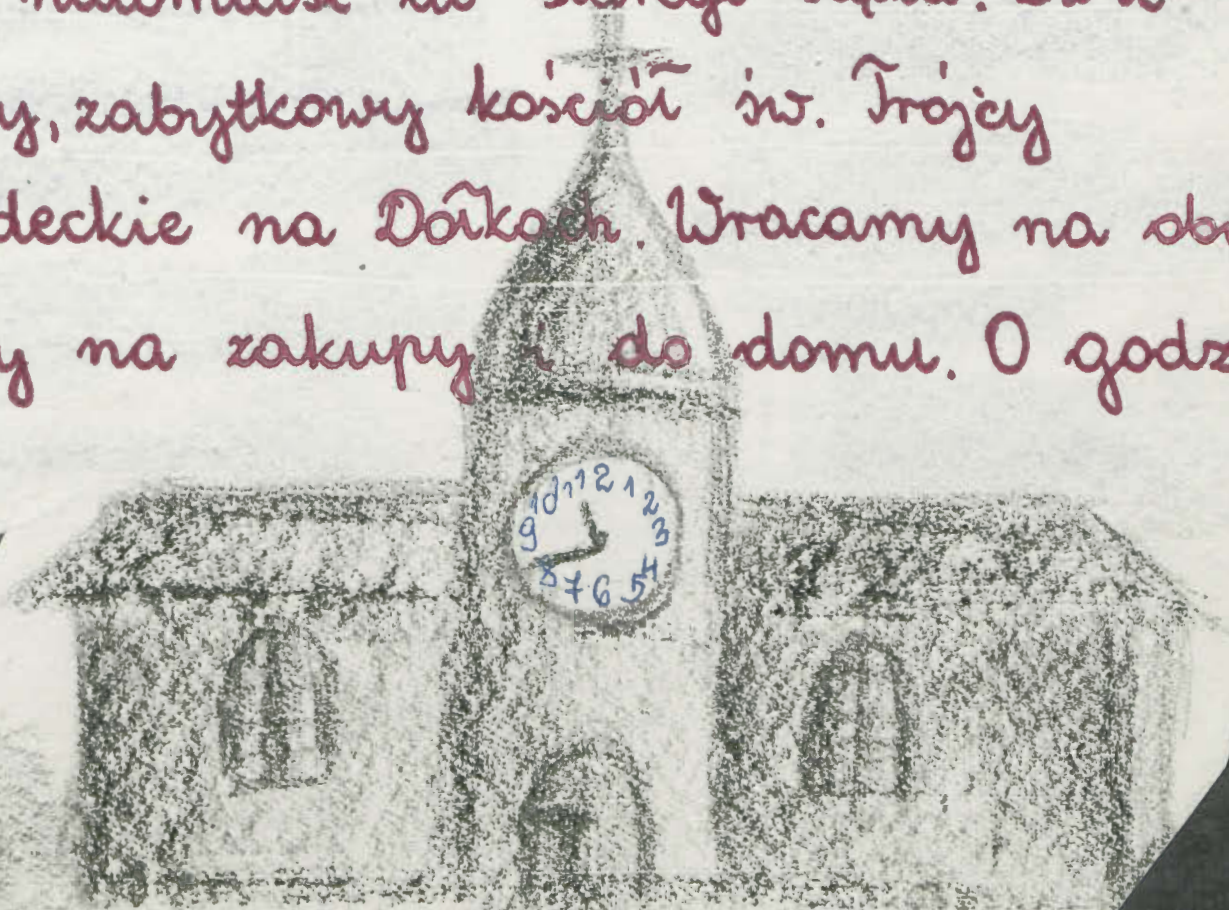 y, zabytkowy kościół św. Trójcy
deckie na Dołkach. Wracamy na
y na zakupy i do domu. O godz
12 1 2 3 4 5 6 7 8 9 10 11